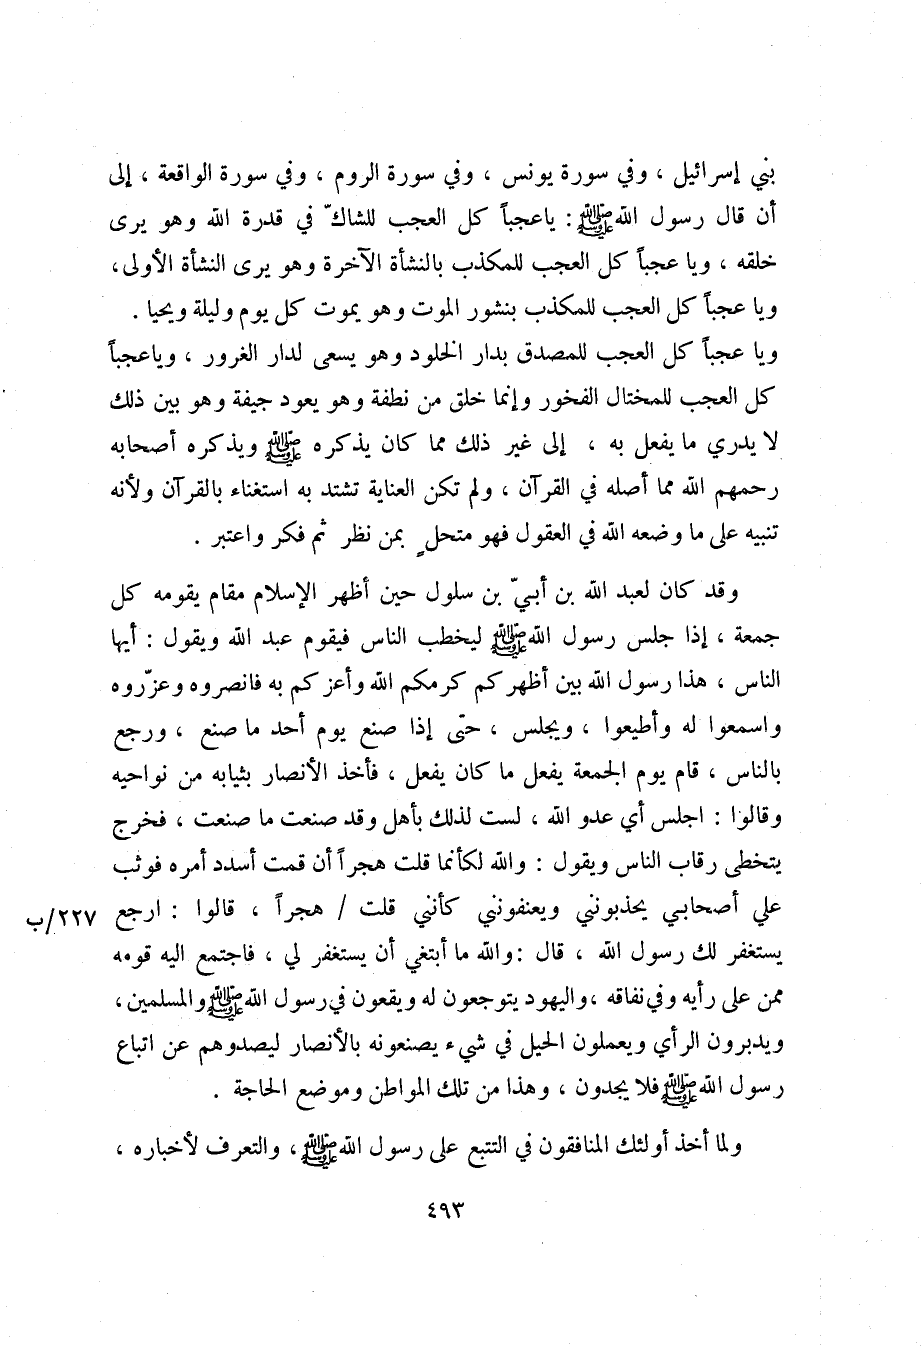 بني إسرائيل ، وفي سورة يونس ، وفي سورة الروم ، وفي سورة الواقعة ، إلى
أن قال رسول الله ﷺ : ياعجباً كل العجب للشاكّ في قدرة الله وهو يرى
خلقه ، ويا عجباً كل العجب للمكذب بالنشأة الآخرة وهو يرى النشأة الأولى،
ويا عجباً كل العجب للمكذب بنشور الموت وهو يموت كل يوم وليلة ويحيا .
ويا عجباً كل العجب للمصدق بدار الخلود وهو يسعى لدار الغرور ، وياعجباً
كل العجب للمختال الفخور وإنما خلق من نطفة وهو يعود جيفة وهو بين ذلك
لا يدري ما يفعل به ، إلى غير ذلك مما كان يذكره ﷺ ويذكره أصحابه
رحمهم الله مما أصله في القرآن ، ولم تكن العناية تشتد به استغناء بالقرآن ولأنه
تنبيه على ما وضعه الله في العقول فهو متحلٍ بمن نظر ثم فكر واعتبر .
وقد كان لعبد الله بن أبيّ بن سلول حين أظهر الإسلام مقام يقومه كل
جمعة ، إذا جلس رسول الله ﷺ ليخطب الناس فيقوم عبد الله ويقول : أيها
الناس ، هذا رسول الله بين أظهركم كرمكم الله وأعزكم به فانصروه وعزّروه
واسمعوا له وأطيعوا ، ويجلس ، حتّى إذا صنع يوم أحد ما صنع ، ورجع
بالناس ، قام يوم الجمعة يفعل ما كان يفعل ، فأخذ الأنصار بثيابه من نواحيه
وقالوا : اجلس أي عدو الله ، لست لذلك بأهل وقد صنعت ما صنعت ، فخرج
يتخطى رقاب الناس ويقول : والله لكأنما قلت هجراً أن قمت أسدد أمره فوثب
علي أصحابي يجذبونني ويعنفونني كأنني قلت / هجراً ، قالوا : ارجع ٢٢٧/ب
يستغفر لك رسول الله ، قال : والله ما أبتغي أن يستغفر لي ، فاجتمع اليه قومه
ممن على رأيه وفي نفاقه ،واليهود يتوجعون له ويقعون في رسول الله ﷺ والمسلمين،
ويدبرون الرأي ويعملون الحيل في شيء يصنعونه بالأنصار ليصدوهم عن اتباع
رسول الله ﷺ فلا يجدون ، وهذا من تلك المواطن وموضع الحاجة .
ولما أخذ أولئك المنافقون في التتبع على رسول الله ﷺ ، والتعرف لأخباره ،
٤٩٣